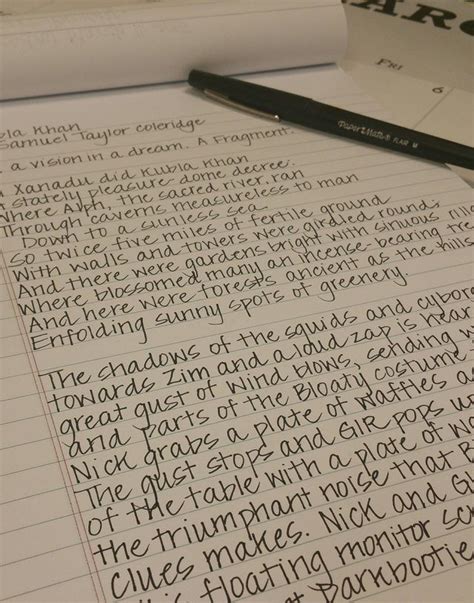 ARC
FRI
6
Paper Mate® FLAIR M
bla Khan
Samuel Taylor Coleridge
a vision in a dream. A Fragment.
Xanadu did Kubla Khan
stately pleasure-dome decree:
Where Alph, the sacred river, ran
Through caverns measureless to man
Down to a sunless sea.
So twice five miles of fertile ground
With walls and towers were girdled round;
And there were gardens bright with sinuous rill
Where blossomed many an incense-bearing tree
And here were forests ancient as the hills
Enfolding sunny spots of greenery.
The shadows of the squids and cybor
towards Zim and a loud zap is hear
great gust of wind blows, sending
and parts of the Bloaty costume
Nick grabs a plate of waffles as
The gust stops and GIR pops u
of the table with a plate of wa
the triumphant noise that B
clues makes. Nick and G
floating monitor scr
at Darkbootie